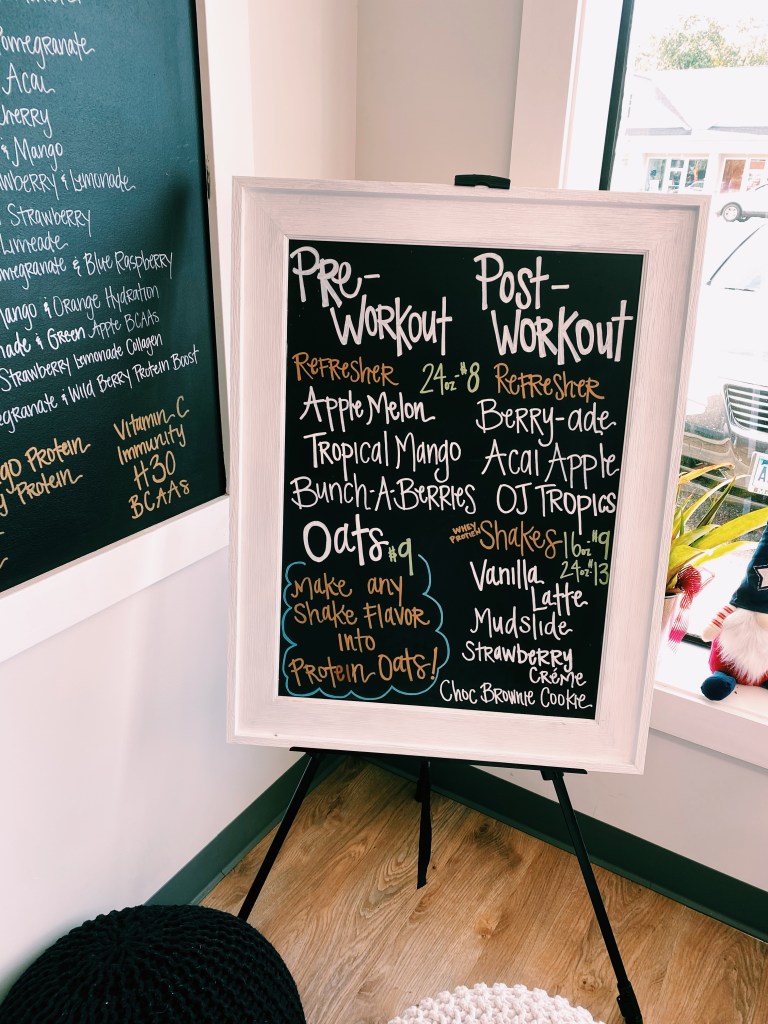 Pomegranate
Acai
Cherry
& Mango
& Lemonade
Strawberry
Limeade
& Blue Raspberry
& Orange Hydration
& Green Apple BCAAs
Strawberry Lemonade Collagen
& Wild Berry Protein Boost
Protein
Protein
Vitamin-C
Immunity
H30
BCAAs
Pre-
Workout
Refresher 24oz-$8
Apple Melon
Tropical Mango
Bunch-A-Berries
Oats $9
Make any
Shake Flavor
into
Protein Oats!
Post-
Workout
Refresher
Berry-ade
Acai Apple
OJ Tropics
Whey Protein Shakes 16oz-$9
24oz-$13
Vanilla
Latte
Mudslide
Strawberry
Créme
Choc Brownie Cookie